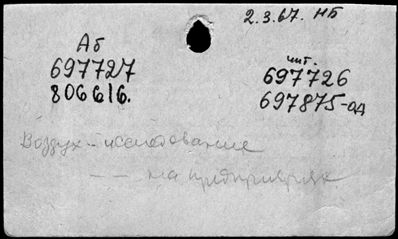 2.3.67. НБ
Аб
697727
806616.
чит.
697726
697875-ад
Воздух - исследование
— — на предприятиях